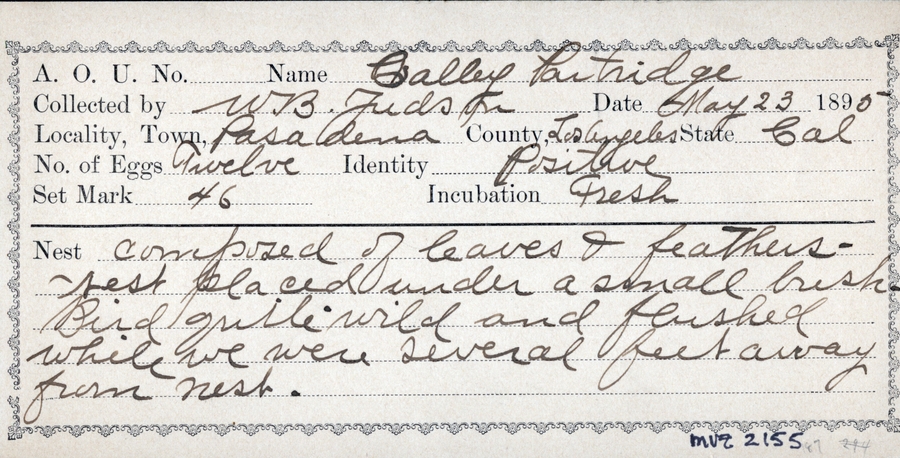 A. O. U. No. Name Valley Partridge
Collected by W.B. Judson Date May 23 1895
Locality, Town, Pasadena County, Los Angeles State Cal
No. of Eggs Twelve Identity Positive
Set Mark 46 Incubation Fresh
Nest composed of leaves & feathers-
nest placed under a small bush
Bird quite wild and flushed
while we were several feet away
from nest.
MVZ 2155